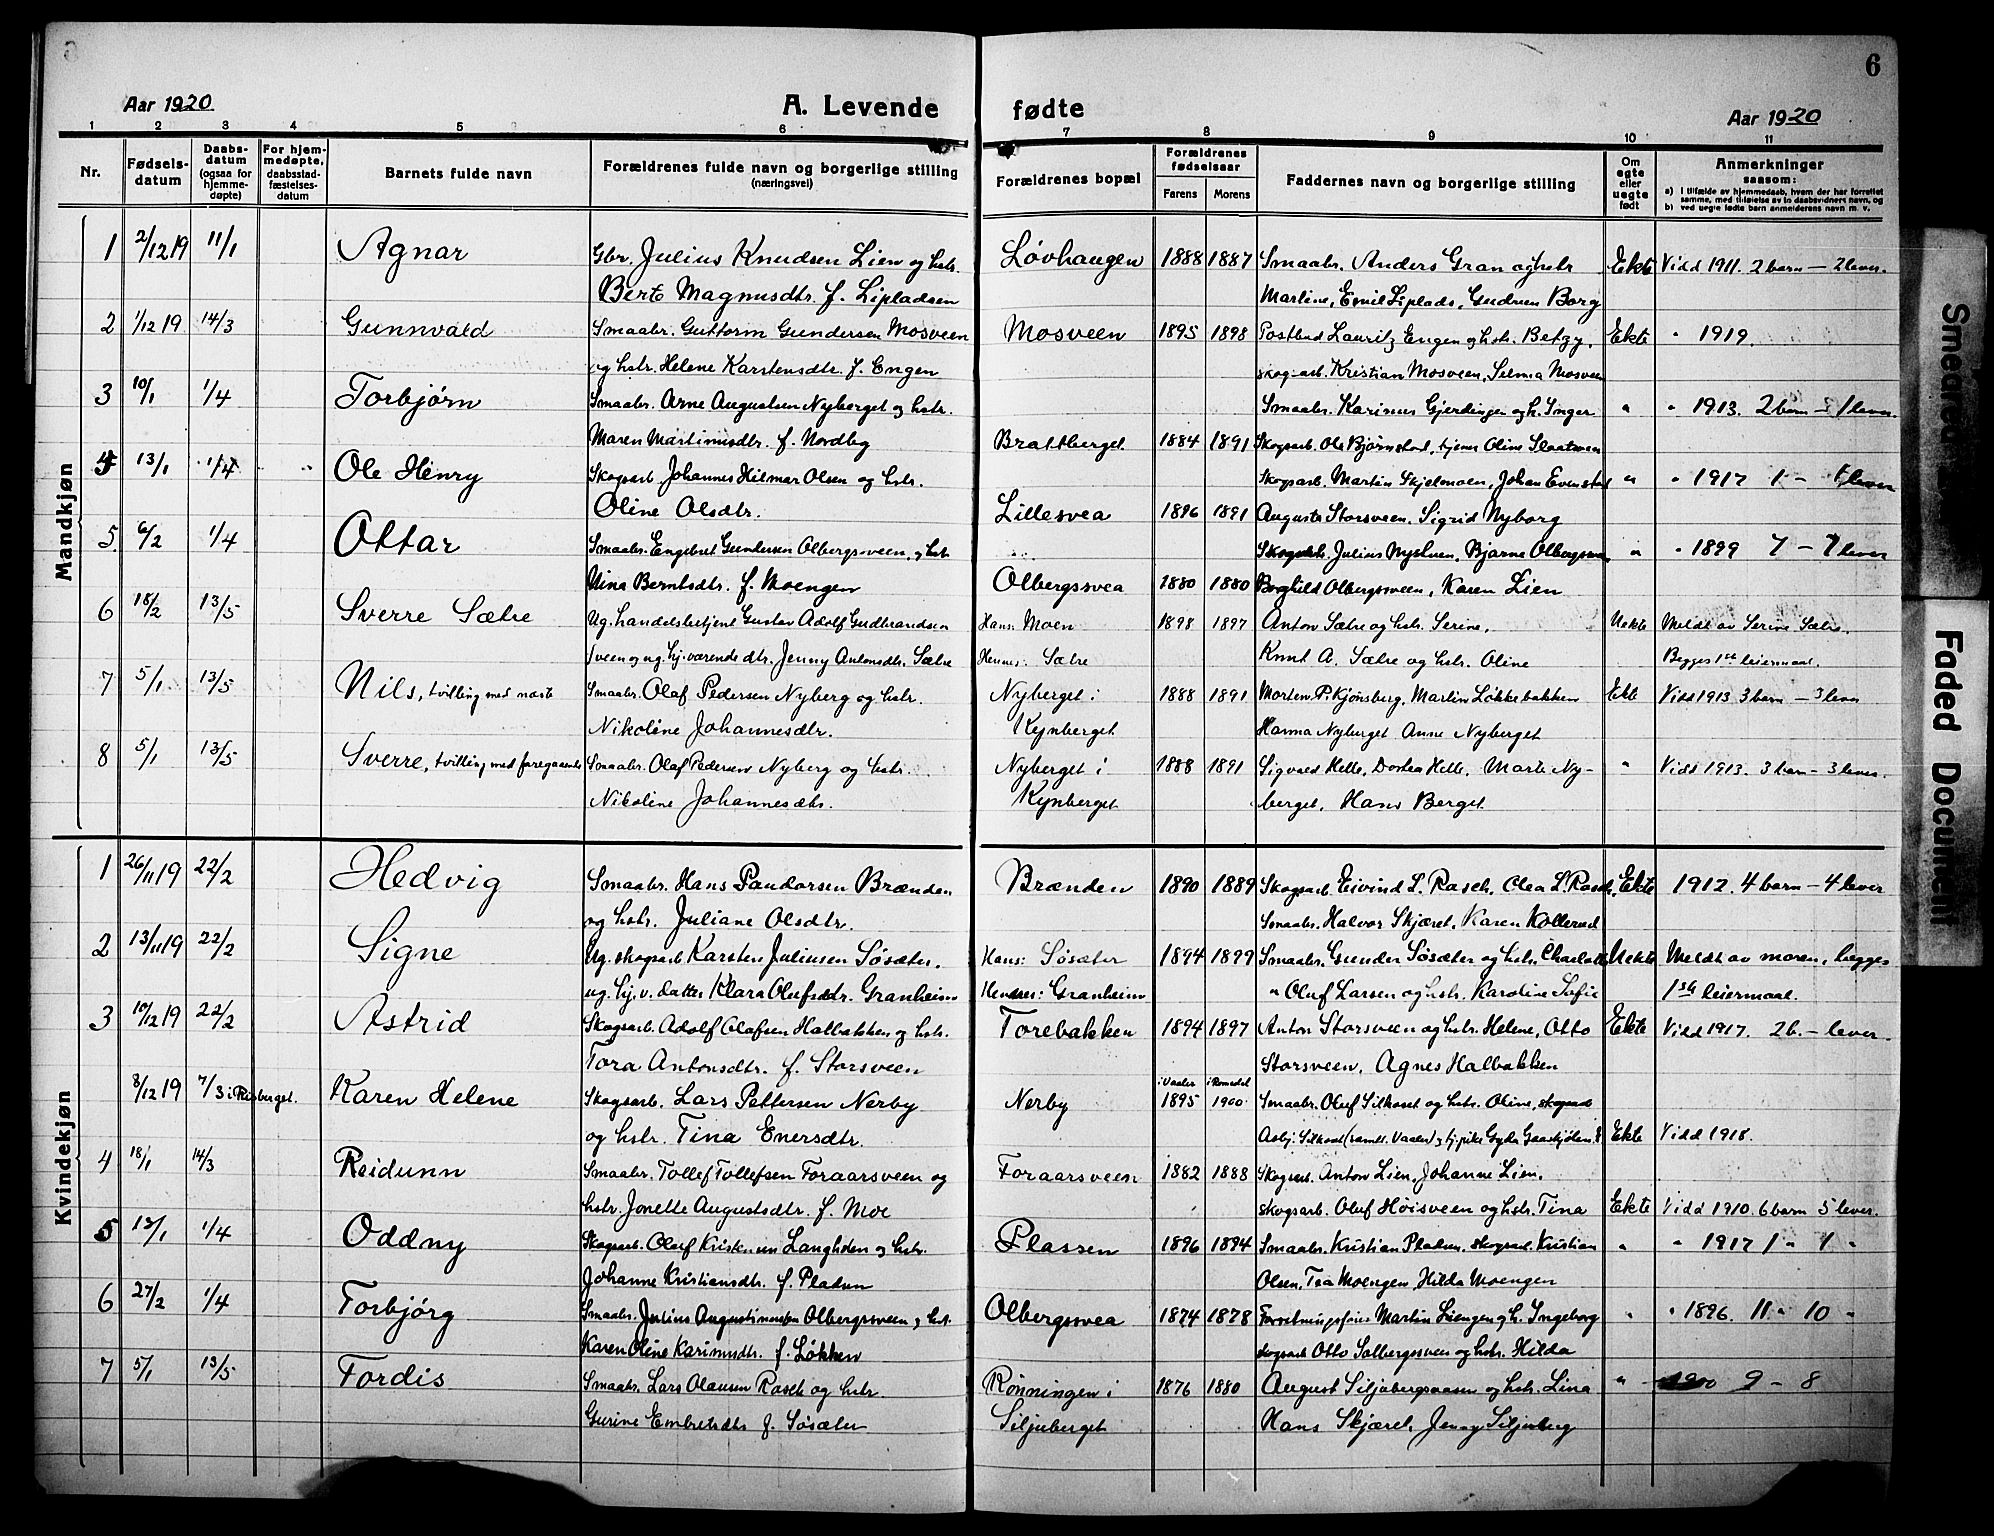 6
Aar 1920 A. Levende fødte Aar 1920
1 2 3 4 5 6 7 8 9 10 11
Nr. Fødselsdatum Daabsdatum (ogsaa for hjemmedøpte) For hjemmedøpte, daabsstadfæstelsesdatum Barnets fulde navn Forældrenes fulde navn og borgerlige stilling (næringsvei) Forældrenes bopæl Forældrenes fødselsaar Farens Morens Faddernes navn og borgerlige stilling Om egte eller uegte født Anmerkninger saasom:
a) I tilfælde av hjemmedaab, hvem der har forrettet samme, med tilføielse av to daabsvidners navn, og
b) ved uegte fødte barn anmelderens navn m. v.
Mandkjøn
1 2/12 19 11/1 Agnar Gbr. Julius Knudsen Lien og hstr. Løvhaugen 1888 1887 Smaabr. Anders Gran og hstr Ekte Vidd 1911. 2 barn – 2 lever.
Berte Magnusdtr. f. Lipladsen Martine, Emil Liplads, Gudrun Borg
2 1/12 19 14/3 Gunnvald Smaabr. Guttorm Gundersen Mosveen Mosveen 1895 1898 Postbud Lauritz Engen og hstr. Betzy. Ekte " 1919.
og hstr. Helene Karstensdtr. f. Engen skog-arb. Kristian Mosveen, Selma Mosveen
3 10/1 1/4 Torbjørn Smaabr. Arne Augustsen Nyberget og hstr. Smaabr. Karinus Gjerdingen og h. Inger " " 1913. 2 barn – 1 lever.
Maren Martinusdtr. f. Nordby Bratberget 1884 1891 Skogsarb. Ole Bjørnstad, tjener Oline Slaatmoen
4 13/1 1/4 Ole Henry Skogsarb. Johannes Hilmar Olsen og hstr. Skogsarb. Martin Skjelmoen, Johan Evenstad " " 1917 1 – 1 lever
Oline Olsdtr. Lillesvea 1896 1891 Augusta Storsveen. Sigrid Nyborg
5. 6/2 1/4 Ottar Smaabr. Engebret Gundersen Olbergsveen, og hstr. Skogsarb. Julius Nysluen, Bjarne Olbergsveen " " 1899 7 – 7 lever
Nina Berntsdtr. f. Moengen Olbergssvea 1880 1880 Borghild Olbergsveen, Karen Lien
6 18/2 13/5 Sverre Sætre Ug. handelsbetjent Gustav Adolf Gudbrandsen Hans: Moen 1898 1897 Anton Sætre og hstr. Serine. Uekte Meldt av Serine Sætre.
Sveen og ug. hj. værende dtr. Jenny Antonsdtr. Sætre Hennes: Sætre Knut A. Sætre og hstr. Oline Begges 1ste leiermaal.
7 5/1 13/5 Nils, tvilling med næste Smaabr. Olaf Pedersen Nyberg og hstr. Nyberget i 1888 1891 Morten P. Kjønsberg, Martin Løkkebakken Ekte Vidd 1913 3 barn – 3 lever
Nikoline Johannesdtr. Kynberget Hanna Nyberget Anne Nyberget
8 5/1 13/5 Sverre, tvilling med foregaaende Smaabr. Olaf Pedersen Nyberg og hstr. Nyberget i 1888 1891 Sigvald Helle, Dorthea Helle, Marte Ny- " Vidd 1913. 3 barn – 3 lever.
Nikoline Johannesdtr. Kynberget berget, Hans Berget
Kvindekjøn
1 26/11 19 22/2 Hedvig Smaabr. Hans Paudorsen Brænden Brænden 1890 1889 Skogsarb. Eivind L. Rasch, Olea L. Rasch, Ekte 1912. 4 barn – 4 lever
og hstr. Juliane Olsdtr. Smaabr. Halvor Skjæret, Karen Kollerud
2 13/11 19 22/2 Signe Ug. skogsarb Karsten Juliusen Søsæter. Hans: Søsæter 1894 1899 Smaabr. Gunder Søsæter og hstr. Charlotte Uekte Meldt av moren, begges
ug. hj. v. datter Klara Olufsdtr. Granheim Hennes: Granheim " Oluf Larsen og hstr. Karoline Sofie 1ste leiermaal.
3 10/12 19 22/2 Astrid Skogsarb. Adolf Olafsen Halbakken og hstr. Torebakken 1894 1897 Anton Storsveen og hstr. Helene, Otto Ekte Vidd 1917. 2 b. – lever.
Tora Antonsdtr. f. Storsveen Storsveen, Agnes Halbakken
8/12 19 7/3 i Risberget. Karen Helene Skogsarb. Lars Pettersen Nerby Nerby i Vaaler 1895 i Romedal 1900 Smaabr. Oluf Silkoset og hstr. Oline, skogsarb
og hstr. Tina Enersdtr. Asbj. Silkoset (samtl. Vaaler) og tj.pike Gyda Gaaskjølen Ekte Vidd 1918.
4 18/1 14/3 Reidunn Smaabr. Tollef Tollefsen Foraarsveen og Foraarsveen 1882 1888 Skogsarb. Anton Lien, Johanne Lien,
hstr. Jonette Augustsdtr. f. Moe skogsarb. Oluf Høisveen og hstr. Tina Ekte Vidd 1910. 6 barn 5 lever.
5 13/1 1/4 Oddny Skogsarb. Oluf Langholen og hstr. Plassen 1896 1894 Smaabr. Kristian Pladsen. skogsarb. Kristian " " 1917 1 " 1 "
Johanne Kristiansdtr. f. Pladsen Olsen, Tea Moengen, Hilda Moengen
6 27/2 1/4 Torbjørg Smaabr. Julius Augustinussen Olbergsveen og hstr. Olbergssvea 1874 1878 Forretningsfører Martin Liengen og h. Ingeborg " " 1896. 11 " 10 "
Karen Oline Karinusdtr. f. Løkken skogsarb Otto Solbergsveen og hstr. Hilda
7 5/1 13/5 Tordis Smaabr. Lars Olausen Rasch og hstr. Rønningen i 1876 1880 August Siljubergsaasen og hstr. Lina " 1900 9 – 8
Gurine Embretsdtr f. Søsæter Siljuberget Hans Skjæret, Jenny Siljuberg
Smeared
Faded Document